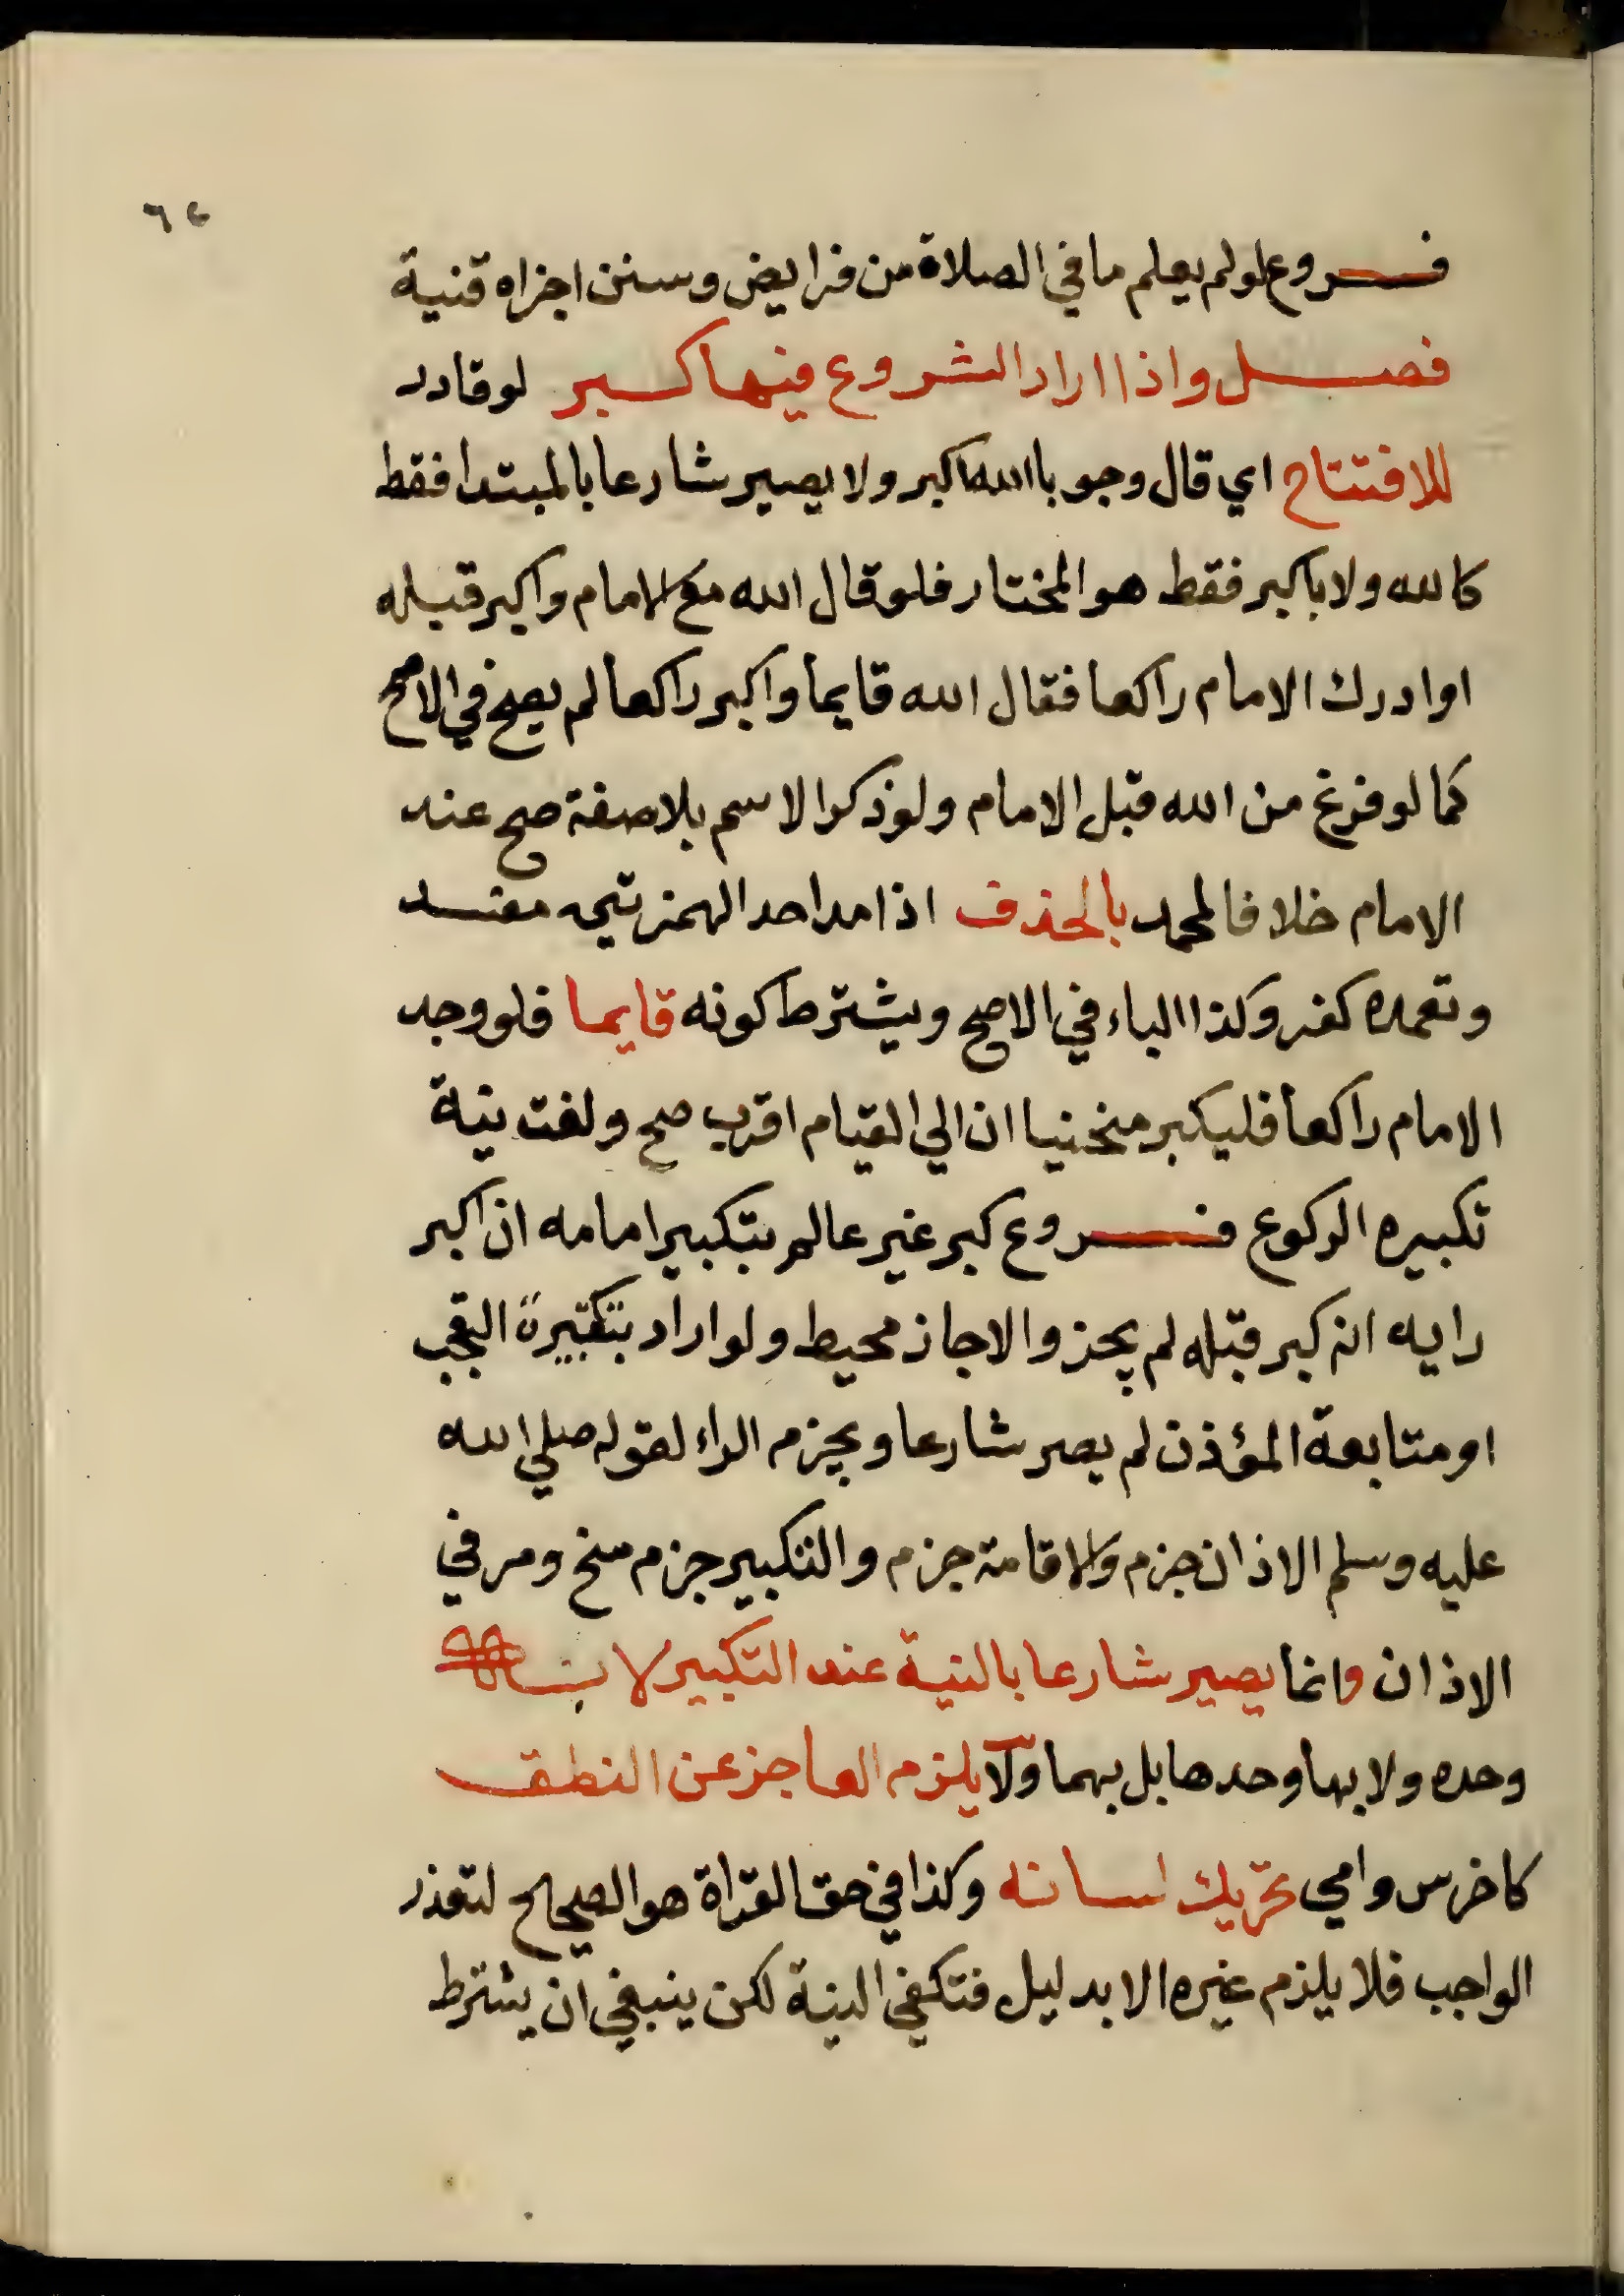 فروع لو لم يعلم ما في الصلاة من فرايض وسنن اجزاه قنية
فصل واذا اراد الشروع فيها كبر لو قادر
للافتتاح اي قال وجوبا الله اكبر ولا يصير شارعا بالمبتدا فقط
كالله ولا باكبر فقط هو المختار فلو قال الله مع الامام واكبر قبله
او ادرك الامام راكعا فقال الله قايما واكبر راكعا لم يصح في الاصح
كما لو فرغ من الله قبل الامام ولو ذكر الاسم بلا صفة صح عند
الامام خلافا لمحمد بالحذف اذا مد احد الهمزتين مفسد
وتعمده كفر وكذا الباء في الاصح ويشترط كونه قايما فلو وجد
الامام راكعا فليكبر منحنيا ان الي القيام اقرب صح ولغت نية
تكبيره الركوع فروع كبر غير عالم بتكبير امامه ان اكبر
رايه انه كبر قبله لم يجز والا جاز محيط ولو اراد بتكبيرة التعجب
او متابعة المؤذن لم يصر شارعا ويجزم الراء لقوله صلي الله
عليه وسلم الاذان جزم والاقامة جزم والتكبير جزم منح ومر في
الاذان وانما يصير شارعا بالنية عند التكبير لا به
وحده ولا بها وحدها بل بهما ولا يلزم العاجز عن النطق
كاخرس وامي تحريك لسانه وكذا في حق القراة هو الصحيح لتعذر
الواجب فلا يلزم غيره الا بدليل فتكفي النية لكن ينبغي ان يشترط